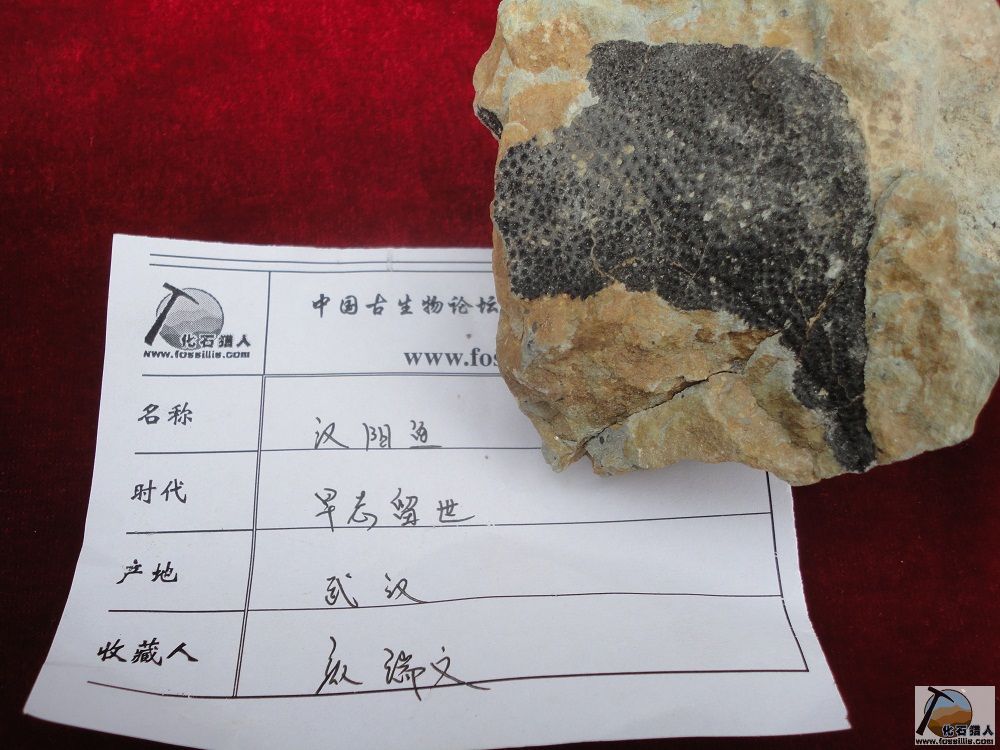 中国古生物论坛
化石猎人
www.fossillis.com
www.fos
名称 汉阳鱼
时代 早志留世
产地 武汉
收藏人 瑞文
化石猎人
www.fossillis.com